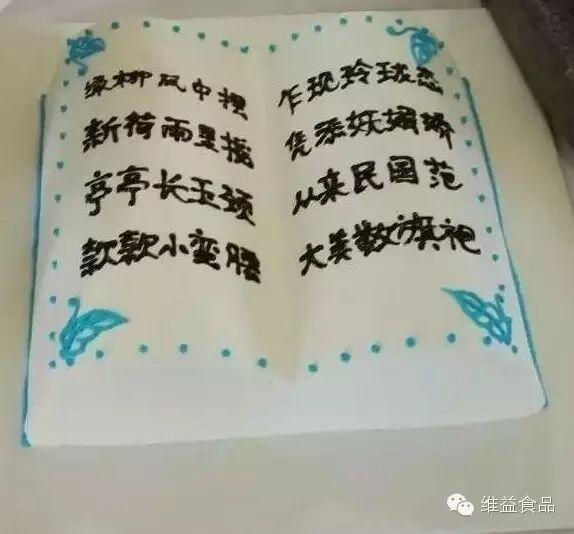 绿柳风中摆
新荷雨里摇
亭亭长玉颈
款款小蛮腰
乍现玲珑态
凭添妖媚娇
从来民国范
大美数旗袍
维益食品